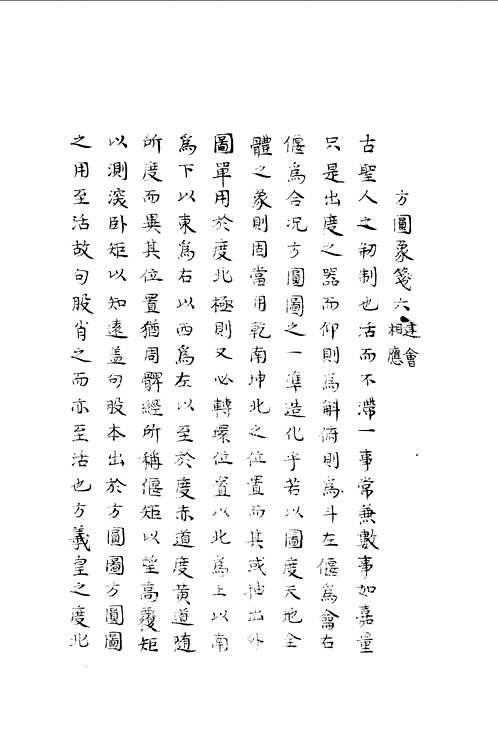 方圓象箋六 建會相應
古聖人之初制也活而不滯一事常兼數事如嘉量
只是出度之器而仰則爲斛俯則爲斗左偃爲龠右
偃爲合况方圓圖之一準造化乎若以圖度天地全
體之象則固當用乾南坤北之位置而其或抽出外
圖單用於度北極則又必轉環位置以北爲上以南
爲下以東爲右以西爲左以至於度赤道度黃道随
所度而異其位置猶周髀經所稱偃矩以望高覆矩
以測深卧矩以知遠盖句股本出於方圓圖方圓圖
之用至活故句股肖之而亦至活也方羲皇之度北